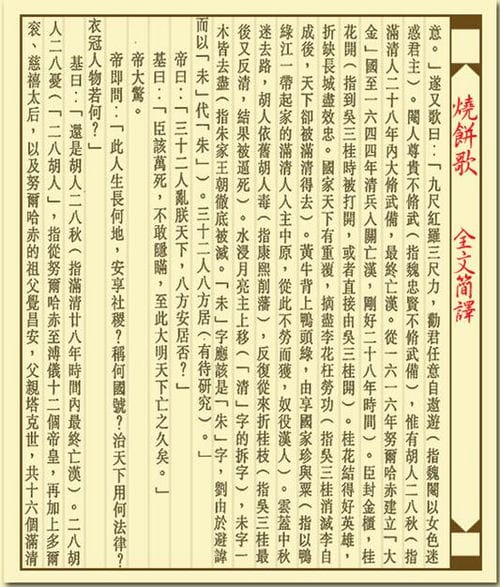 燒餅歌 全文簡譯
意。」遂又歌曰:「九尺紅羅三尺刀,勸君任意自遨遊(指魏閹以女色迷
惑君主)。閹人尊貴不脩武(指魏忠賢不脩武備),惟有胡人二八秋(指
滿清人二十八年內大脩武備,最終亡漢。從一六一六年努爾哈赤建立「大
金」國至一六四四年清兵入關亡漢,剛好二十八年時間)。臣封金櫃,桂
花開(指到吳三桂時被打開,或者直接由吳三桂開)。桂花結得好英雄,
折缺長城盡效忠。國家天下有重覆,摘盡李花枉勞功(指吳三桂消滅李自
成後,天下卻被滿清得去)。黃牛背上鴨頭綠,由享國家珍與粟(指以鴨
綠江一帶起家的滿清人入主中原,從此不勞而獲,奴役漢人)。雲蓋中秋
迷去路,胡人依舊胡人毒(指康熙削藩),反復從來折桂枝(指吳三桂最
後又反清,結果被逼死)。水浸月亮主上移(「清」字的拆字),未字一
木皆去盡(指朱家王朝徹底被滅。「未」字應該是「朱」字,劉由於避諱
而以「未」代「朱」)。三十二人八方居(有待研究)。」
帝曰:「三十二人亂朕天下,八方安居否?」
基曰:「臣該萬死,不敢隱瞞,至此大明天下亡之久矣。」
帝大驚。
帝即問:「此人生長何地,安享社稷?稱何國號?治天下用何法律?
衣冠人物若何?」
基曰:「還是胡人二八秋(指滿清廿八年時間內最終亡漢)。二八胡
人二八憂(「二八胡人」,指從努爾哈赤至溥儀十二個帝皇,再加上多爾
袞、慈禧太后,以及努爾哈赤的祖父覺昌安,父親塔克世,共十六個滿清